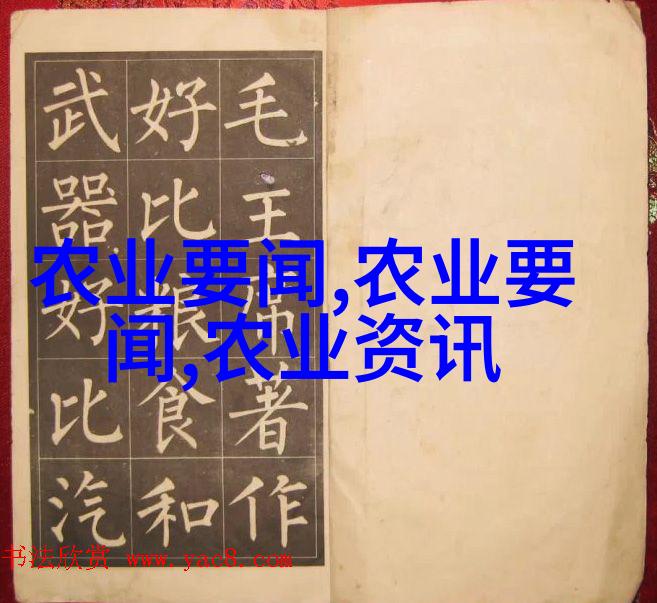 毛主席著作
好比粮食和
武器好比汽
农业要闻,农业要
闻,农业资讯
书法欣赏 www.yac8.com